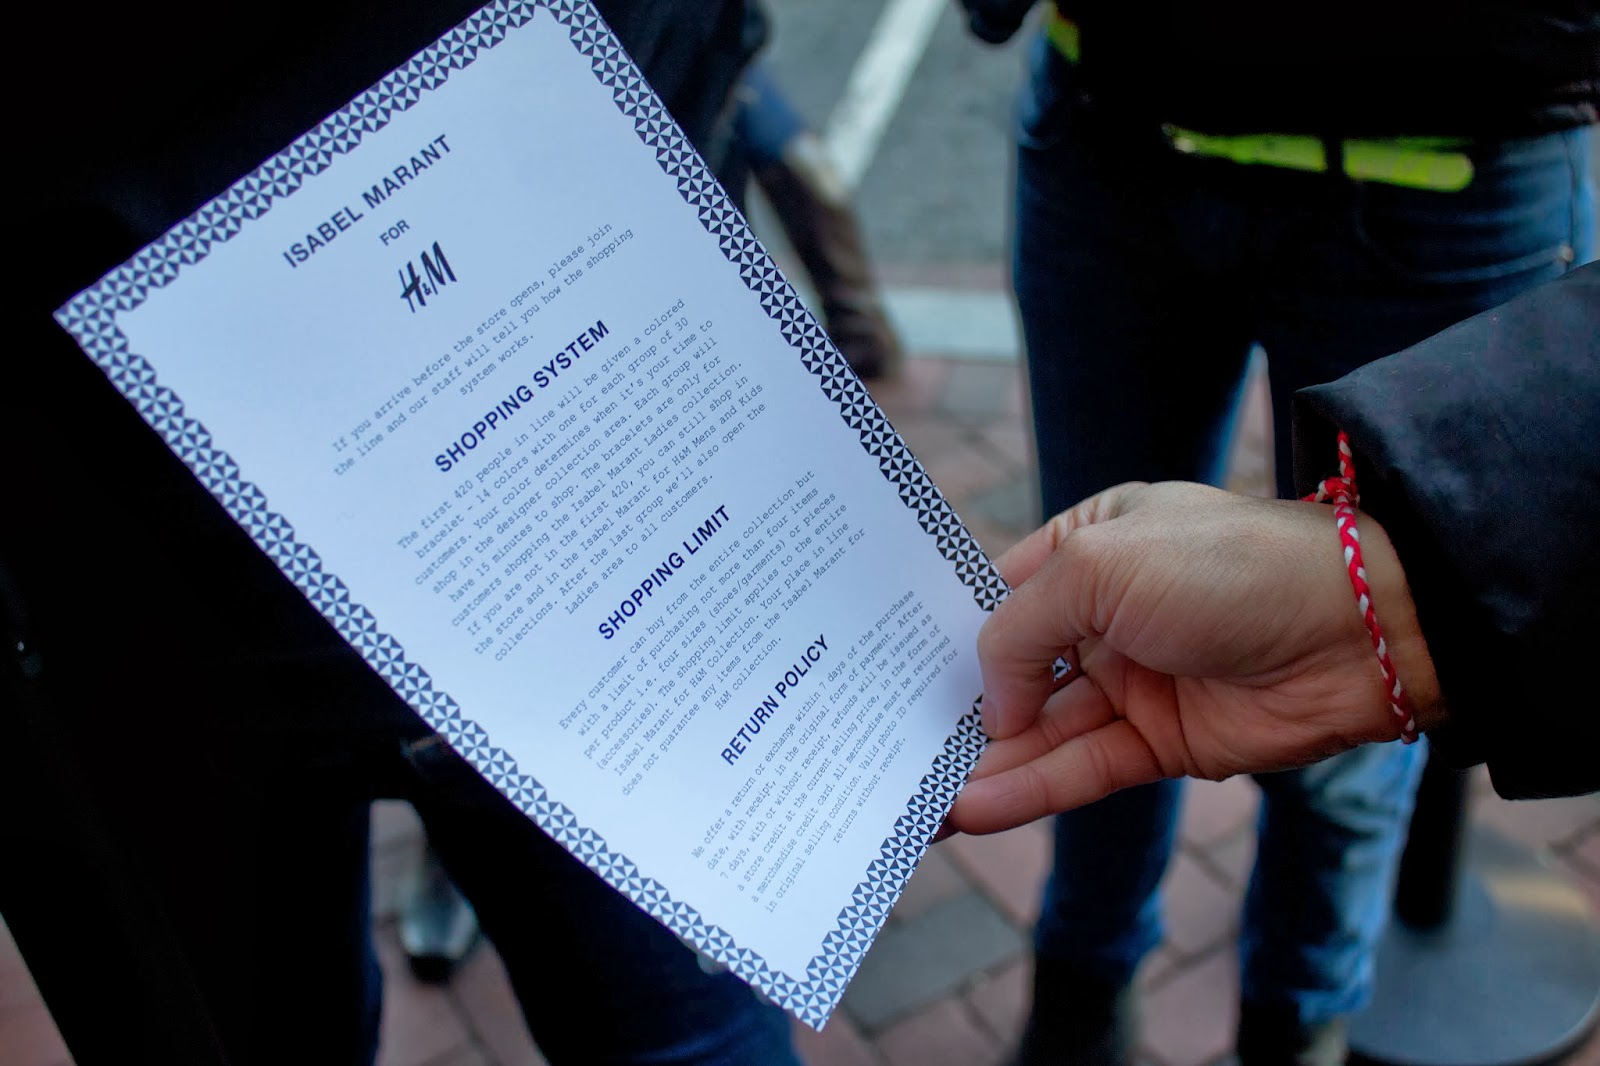 ISABEL MARANT
FOR
H&M
If you arrive before the store opens, please join
the line and our staff will tell you how the shopping
system works.
SHOPPING SYSTEM
The first 420 people in line will be given a colored
bracelet - 14 colors with one for each group of 30
customers. Your color determines when it's your time to
shop in the designer collection area. Each group will
have 15 minutes to shop. The bracelets are only for
customers shopping the Isabel Marant Ladies collection.
If you are not in the first 420, you can still shop in
the store and in the Isabel Marant for H&M Mens and Kids
collections. After the last group we'll also open the
Ladies area to all customers.
SHOPPING LIMIT
Every customer can buy from the entire collection but
with a limit of purchasing not more than four items
per product i.e. four sizes (shoes/garments) or pieces
(accessories). The shopping limit applies to the entire
Isabel Marant for H&M Collection. Your place in line
does not guarantee any items from the Isabel Marant for
H&M collection.
RETURN POLICY
We offer a return or exchange within 7 days of the purchase
date, with receipt, in the original form of payment. After
7 days, with or without receipt, refunds will be issued as
a store credit at the current selling price, in the form of
a merchandise credit card. All merchandise must be returned
in original selling condition. Valid photo ID required for
returns without receipt.